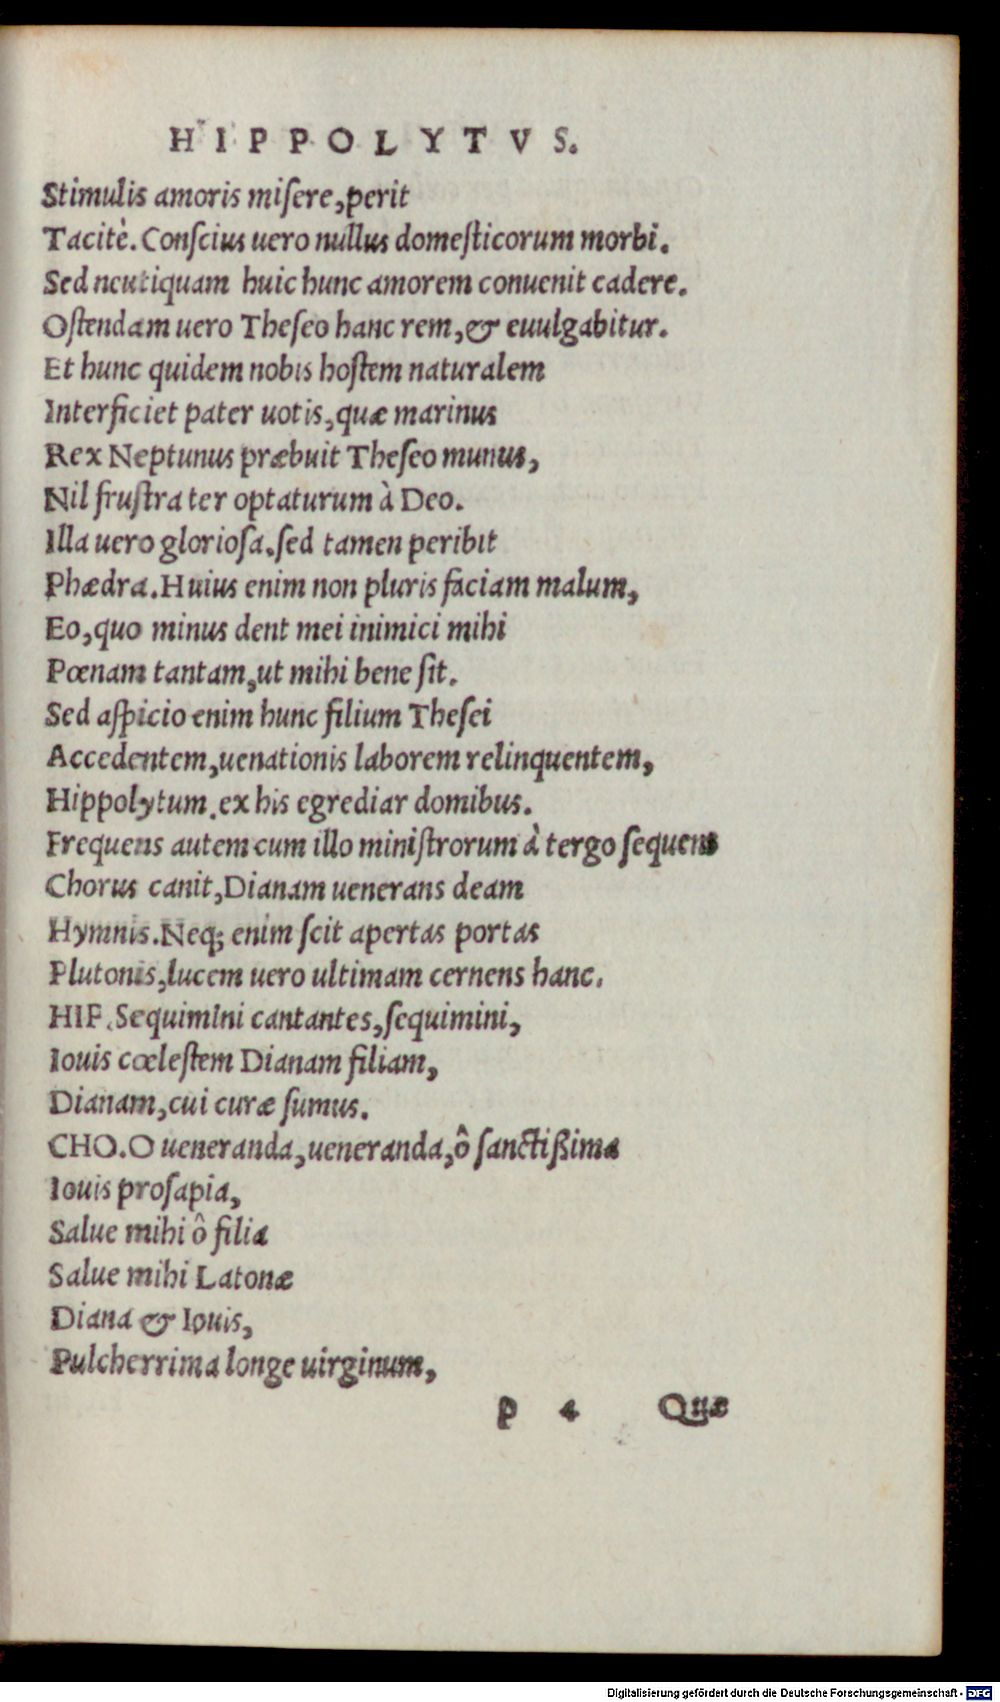 HIPPOLYTVS.
Stimulis amoris miſere, perit
Tacitè. Conſcius uero nullus domeſticorum morbi.
Sed neutiquam huic hunc amorem conuenit cadere.
Oſtendam uero Theſeo hanc rem, & euulgabitur.
Et hunc quidem nobis hoſtem naturalem
Interficiet pater uotis, quæ marinus
Rex Neptunus præbuit Theſeo munus,
Nil fruſtra ter optaturum à Deo.
Illa uero glorioſa. ſed tamen peribit
Phædra. Huius enim non pluris faciam malum,
Eo, quo minus dent mei inimici mihi
Pœnam tantam, ut mihi bene ſit.
Sed aſpicio enim hunc filium Theſei
Accedentem, uenationis laborem relinquentem,
Hippolytum. ex his egrediar domibus.
Frequens autem cum illo miniſtrorum à tergo ſequens
Chorus canit, Dianam uenerans deam
Hymnis. Neq; enim ſcit apertas portas
Plutonis, lucem uero ultimam cernens hanc.
HIP. Sequimini cantantes, ſequimini,
Iouis cœleſtem Dianam filiam,
Dianam, cui curæ ſumus.
CHO. O ueneranda, ueneranda, ô ſanctißima
Iouis proſapia,
Salue mihi ô filia
Salue mihi Latonæ
Diana & Iouis,
Pulcherrima longe uirginum,
p 4 Quæ
Digitalisierung gefördert durch die Deutsche Forschungsgemeinschaft - DFG